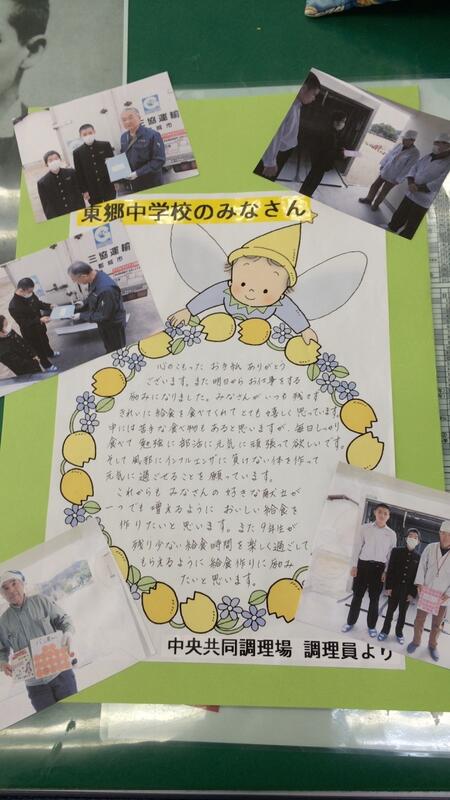 三協運輸
都城市
東郷中学校のみなさん
三協運輸
都城市
心のこもった お手紙 ありがとう
ございます。また明日からお仕事をする
励みになりました。みなさんがいつも残さず
きれいに給食を食べてくれてとても嬉しく思っています。
中には苦手な食べ物もあると思いますが、毎日しっかり
食べて 勉強に部活に元気に頑張って欲しいです。
そして風邪にインフルエンザに負けない体を作って
元気に過ごせることを願っています。
これからも みなさんの好きな献立が
一つでも増えるように おいしい給食を
作りたいと思います。また9年生が
残り少ない給食時間を楽しく過ごして
もらえるように 給食作りに励み
たいと思います。
中央共同調理場 調理員より